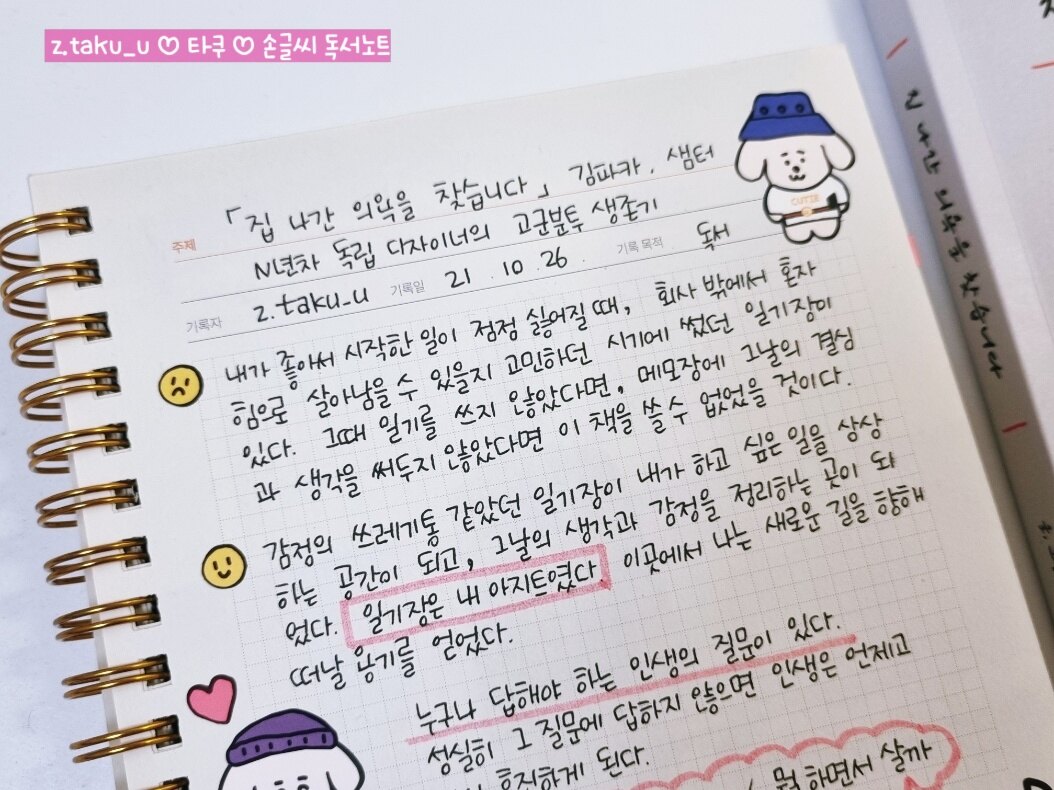 z.taku_u ♡ 타쿠 ♡ 손글씨 독서노트
주제 「집 나간 의욕을 찾습니다」 김파카. 샘터
N년차 독립 디자이너의 고군분투 생존기
기록자 z.taku_u 기록일 21.10.26. 기록 목적 독서
CUTIE
내가 좋아써 시작한 일이 점정 싫어질 때, 회사 밖에서 혼자
힘으로 살아남을 수 있을지 고민하던 시기에 썼던 일기장이
있다. 그때 일기를 쓰지 않았다면, 메모장에 그날의 결심
과 생각을 써두지 않았다면 이 책을 쓸 수 없었을 것이다.
감정의 쓰레기통 같았던 일기장이 내가 하고 싶은 일을 상상
하는 공간이 되고, 그날의 생각과 감정을 정리하는 곳이 돠
었다. 일기장은 내 아지트였다. 이곳에서 나는 새로운 길을 향해
떠날 용기를 얻었다.
누구나 답해야 하는 인생의 질문이 있다.
성실히 그 질문에 답하지 않으면 인생은 언제고
흐지하게 된다.
뭘 하면서 살까
나간 의욕을 찾습니다